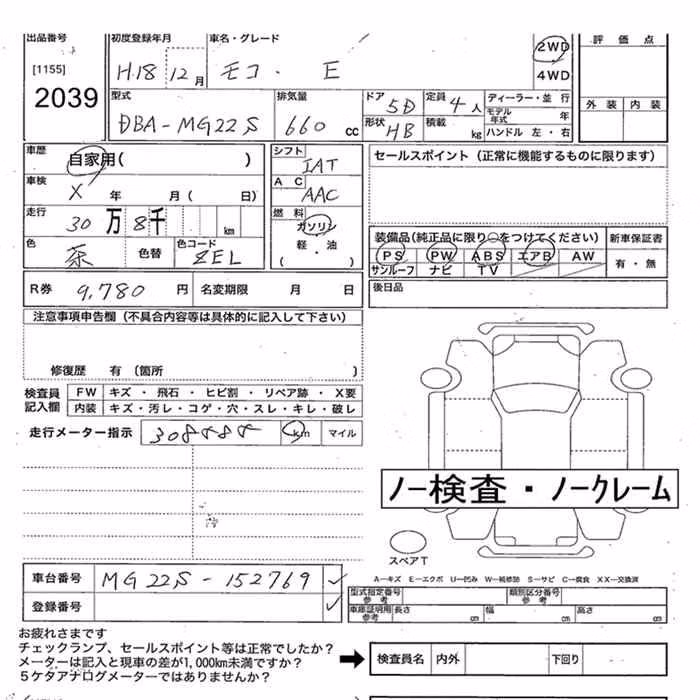 出品番号 初度登録年月 車名・グレード 2WD 評価点
[1155] H.18 12月 モコ・E 4WD
2039 外装 内装
型式 排気量 ドア 5D 定員 4人 ディーラー・並行
DBA-MG22S 660cc 形状 HB 積載 kg モデル年式 年
ハンドル 左・右
車歴 自家用( ) シフト IAT セールスポイント（正常に機能するものに限ります）
車検 X 年 月( 日) AC AAC
走行 30万8千 km 燃料 ガソリン
軽・油
( )
色 茶 色替 色コード ZEL
装備品(純正品に限り○をつけてください) 新車保証書
PS PW ABS エアB AW 有・無
サンルーフ ナビ TV
R券 9,780円 名変期限 月 日 後日品
注意事項申告欄（不具合内容等は具体的に記入して下さい）
修復歴 有（箇所 ）
検査員記入欄 FW キズ・飛石・ヒビ割・リペア跡・X要
内装 キズ・汚レ・コゲ・穴・スレ・キレ・破レ
走行メーター指示 km マイル
ノー検査・ノークレーム
スペアT
A―キズ E―エクボ U―凹み W―補修跡 S―サビ C―腐食 XX―交換済
車台番号 MG22S-152769
登録番号
型式指定番号参考 類別区分番号参考
車庫証明用参考 長さ cm 幅 cm 高さ cm
お疲れさまです
チェックランプ、セールスポイント等は正常でしたか？
メーターは記入と現車の差が1,000km未満ですか？
5ケタアナログメーターではありませんか？
検査員名 内外 下回り